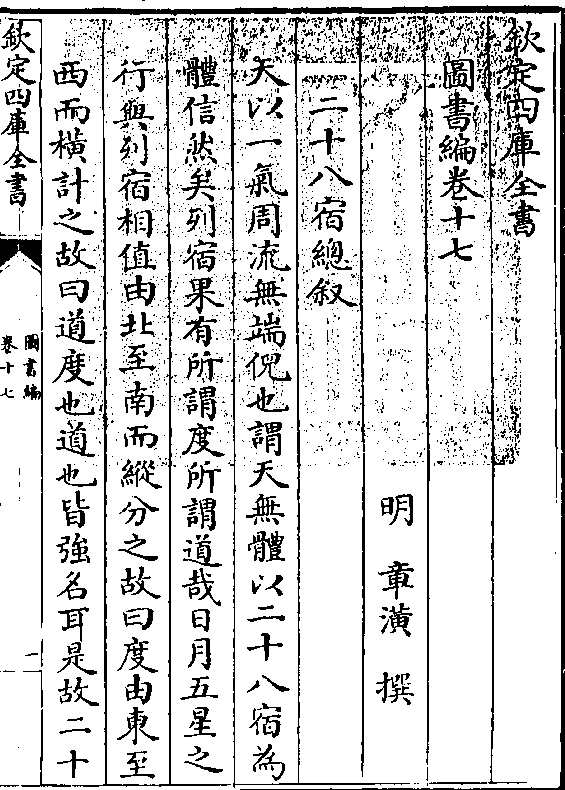 欽定四庫全書
圖書編卷十七
明 章潢 撰
二十八宿總敘
天以一氣周流無端倪也謂天無體以二十八宿為
體信然矣列宿果有所謂度所謂道哉日月五星之
行與列宿相值由北至南而縱分之故曰度由東至
西而橫計之故曰道度也道也皆強名耳是故二十
欽定四庫全書
圖書編
卷十七
一